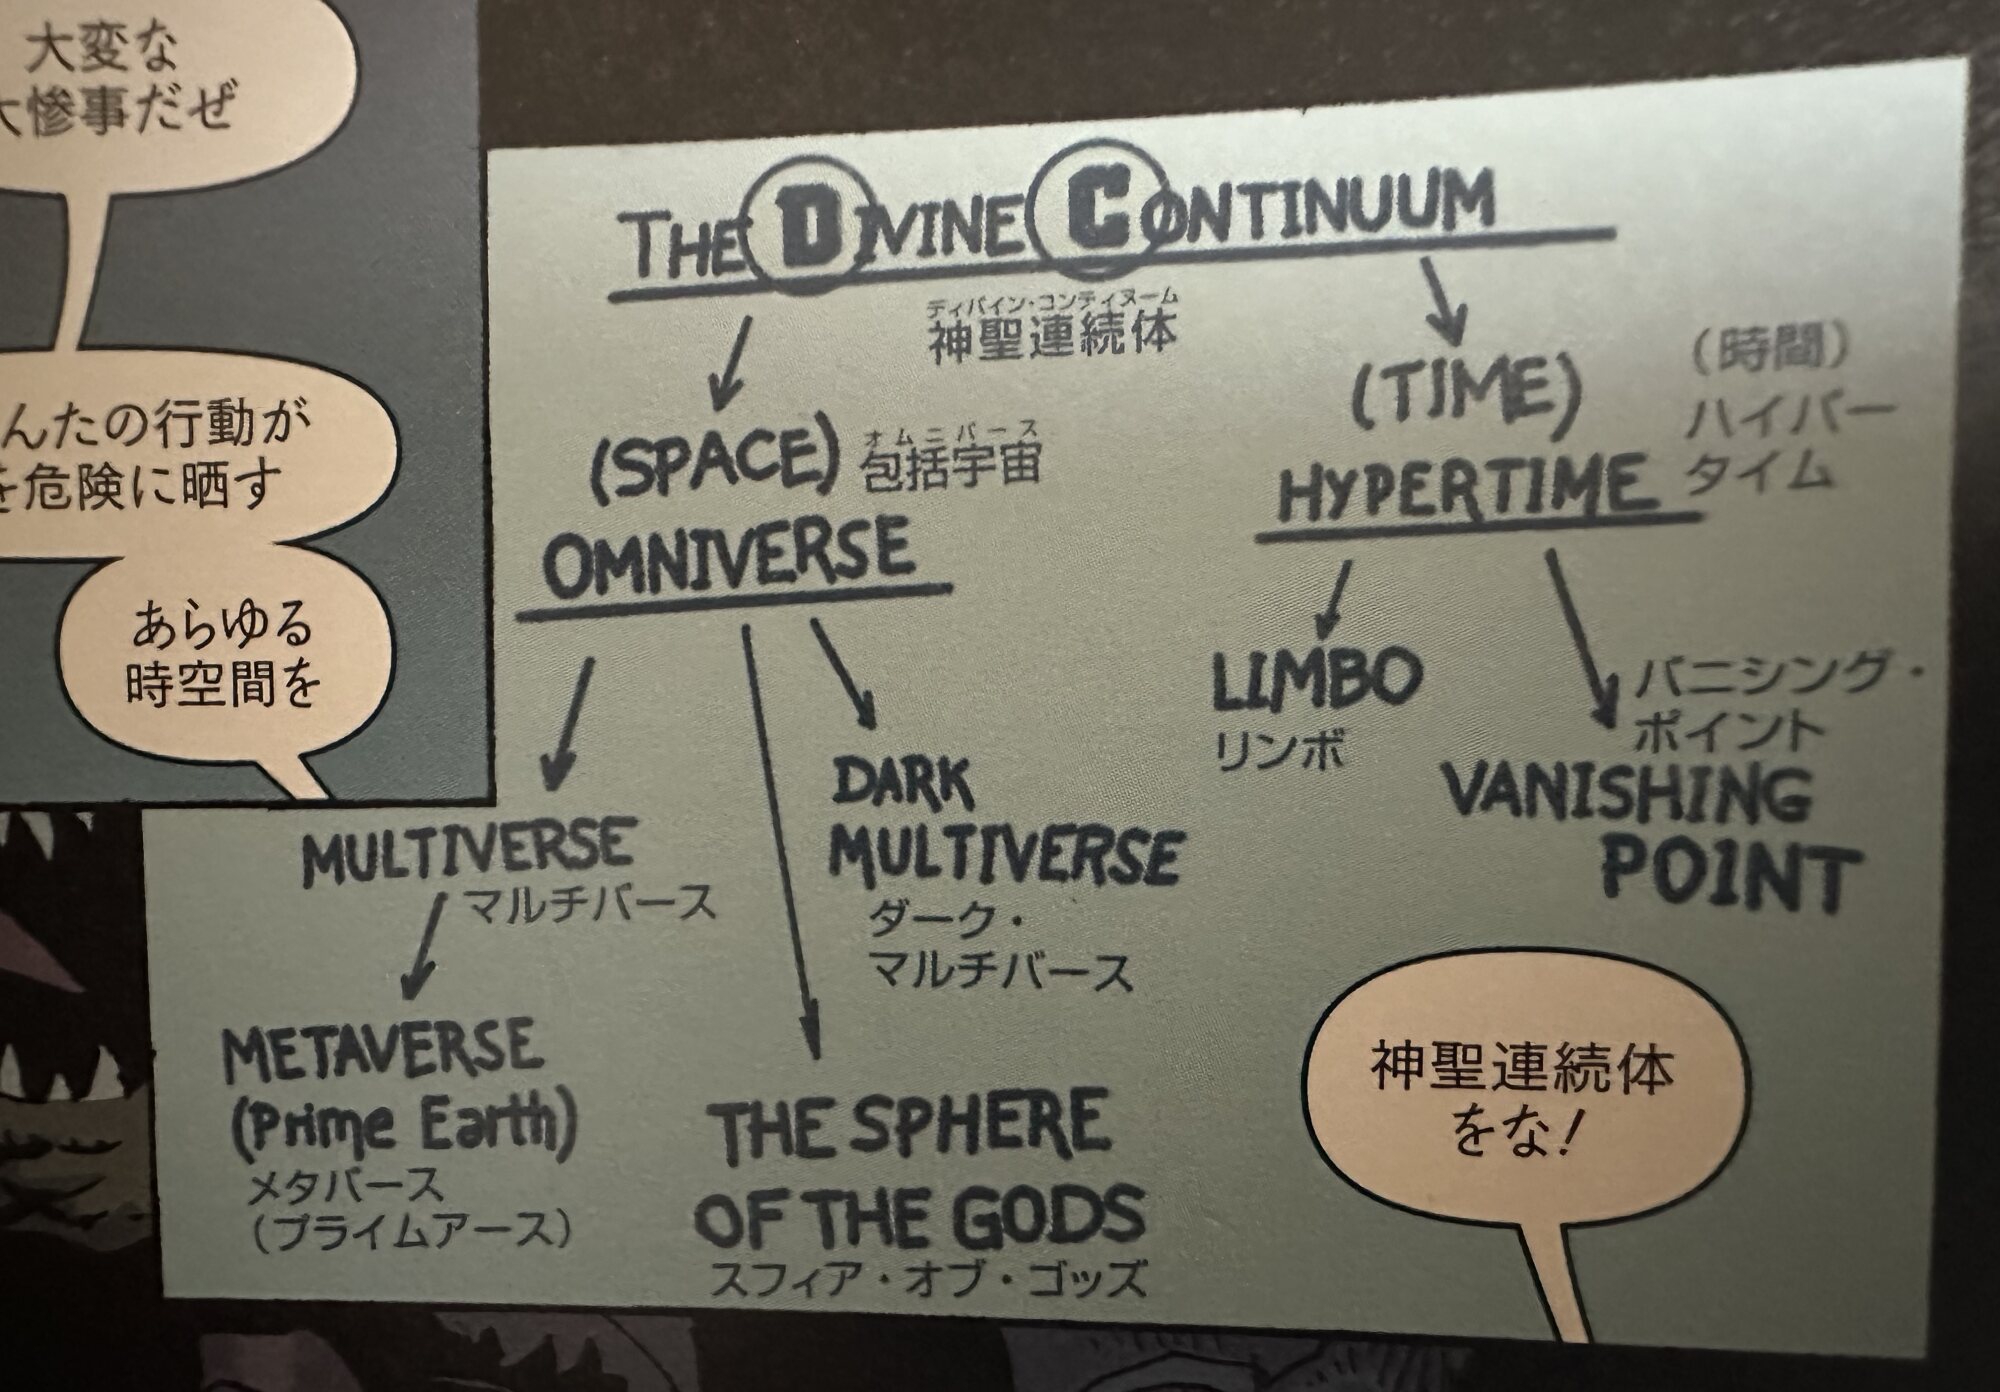 大変な
大惨事だぜ
んたの行動が
を危険に晒す
あらゆる
時空間を
THE DIVINE CONTINUUM
ディバイン・コンティヌーム
神聖連続体
(SPACE)
オムニバース
包括宇宙
OMNIVERSE
(TIME)
(時間)
HYPERTIME
ハイパー
タイム
MULTIVERSE
マルチバース
DARK
MULTIVERSE
ダーク・
マルチバース
LIMBO
リンボ
バニシング・
ポイント
VANISHING
POINT
METAVERSE
(Prime Earth)
メタバース
(プライムアース)
THE SPHERE
OF THE GODS
スフィア・オブ・ゴッズ
神聖連続体
をな!